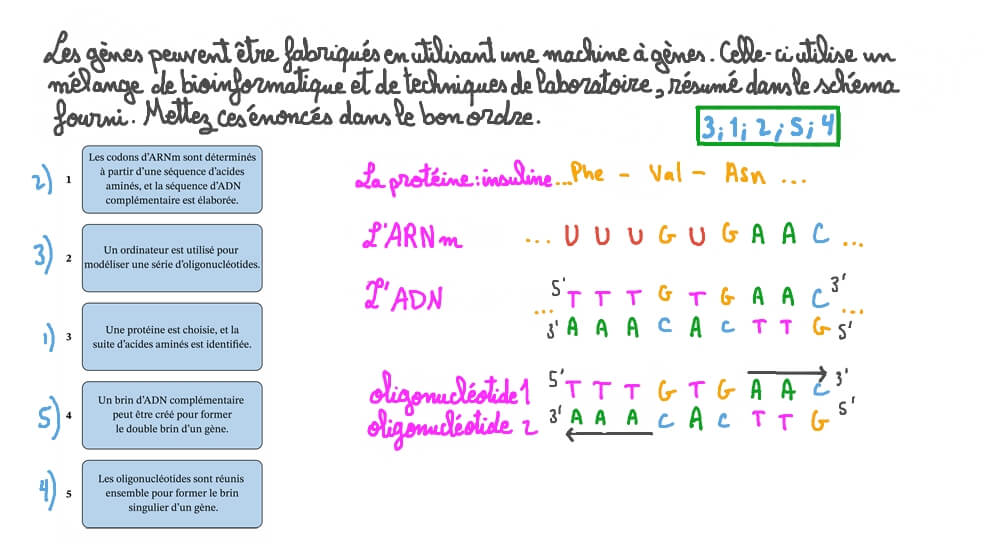 Les gènes peuvent être fabriqués en utilisant une machine à gènes. Celle-ci utilise un
mélange de bioinformatique et de techniques de laboratoire, résumé dans le schéma
fourni. Mettez ces énoncés dans le bon ordre.
3; 1; 2; 5; 4
2)
1
Les codons d'ARNm sont déterminés
à partir d'une séquence d'acides
aminés, et la séquence d'ADN
complémentaire est élaborée.
3)
2
Un ordinateur est utilisé pour
modéliser une série d'oligonucléotides.
1)
3
Une protéine est choisie, et la
suite d'acides aminés est identifiée.
5)
4
Un brin d'ADN complémentaire
peut être créé pour former
le double brin d'un gène.
4)
5
Les oligonucléotides sont réunis
ensemble pour former le brin
singulier d'un gène.
La protéine: insuline ... Phe - Val - Asn ...
L'ARNm ... U U U G U G A A C ...
L'ADN 5' T T T G T G A A C 3'
... ...
3' A A A C A C T T G 5'
oligonucléotide 1 5' T T T G T G A A C 3'
oligonucléotide 2 3' A A A C A C T T G 5'